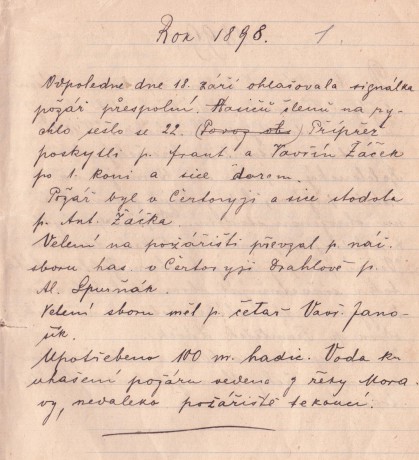 Rok 1898. 1.
Odpoledne dne 18. září ohlašovala signálka
požár přespolní. Hasičů členů na ry-
chlo sešlo se 22. (Povoz obs) Přípřež
poskytli p. Frant. a Vavřín Žáček
po 1. koni a sice darem.
Požár byl v Čertoryji a sice stodola
p. Ant. Žáčka
Velení na požářišti převzal p. náč.
sboru has. v Čertoryji Drahlově p.
Al. Spurňák.
Velení sboru měl p. četař Vavř. Jano-
šík.
Upotřebeno 100 m. hadic. Voda ku
uhašení požáru vedena z řeky Mora-
vy, nevaleko požářiště tekoucí.